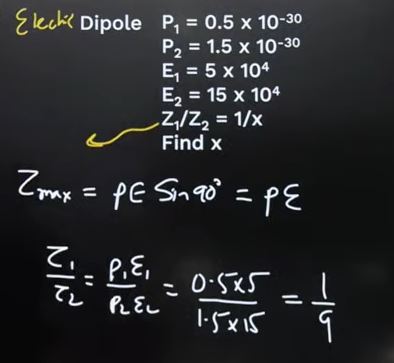 Electric Dipole P₁ = 0.5 x 10⁻³⁰
P₂ = 1.5 x 10⁻³⁰
E₁ = 5 x 10⁴
E₂ = 15 x 10⁴
Z₁/Z₂ = 1/x
Find x
τmax = PE Sin 90° = PE
τ₁/τ₂ = P₁E₁/P₂E₂ = 0.5x5/1.5x15 = 1/9